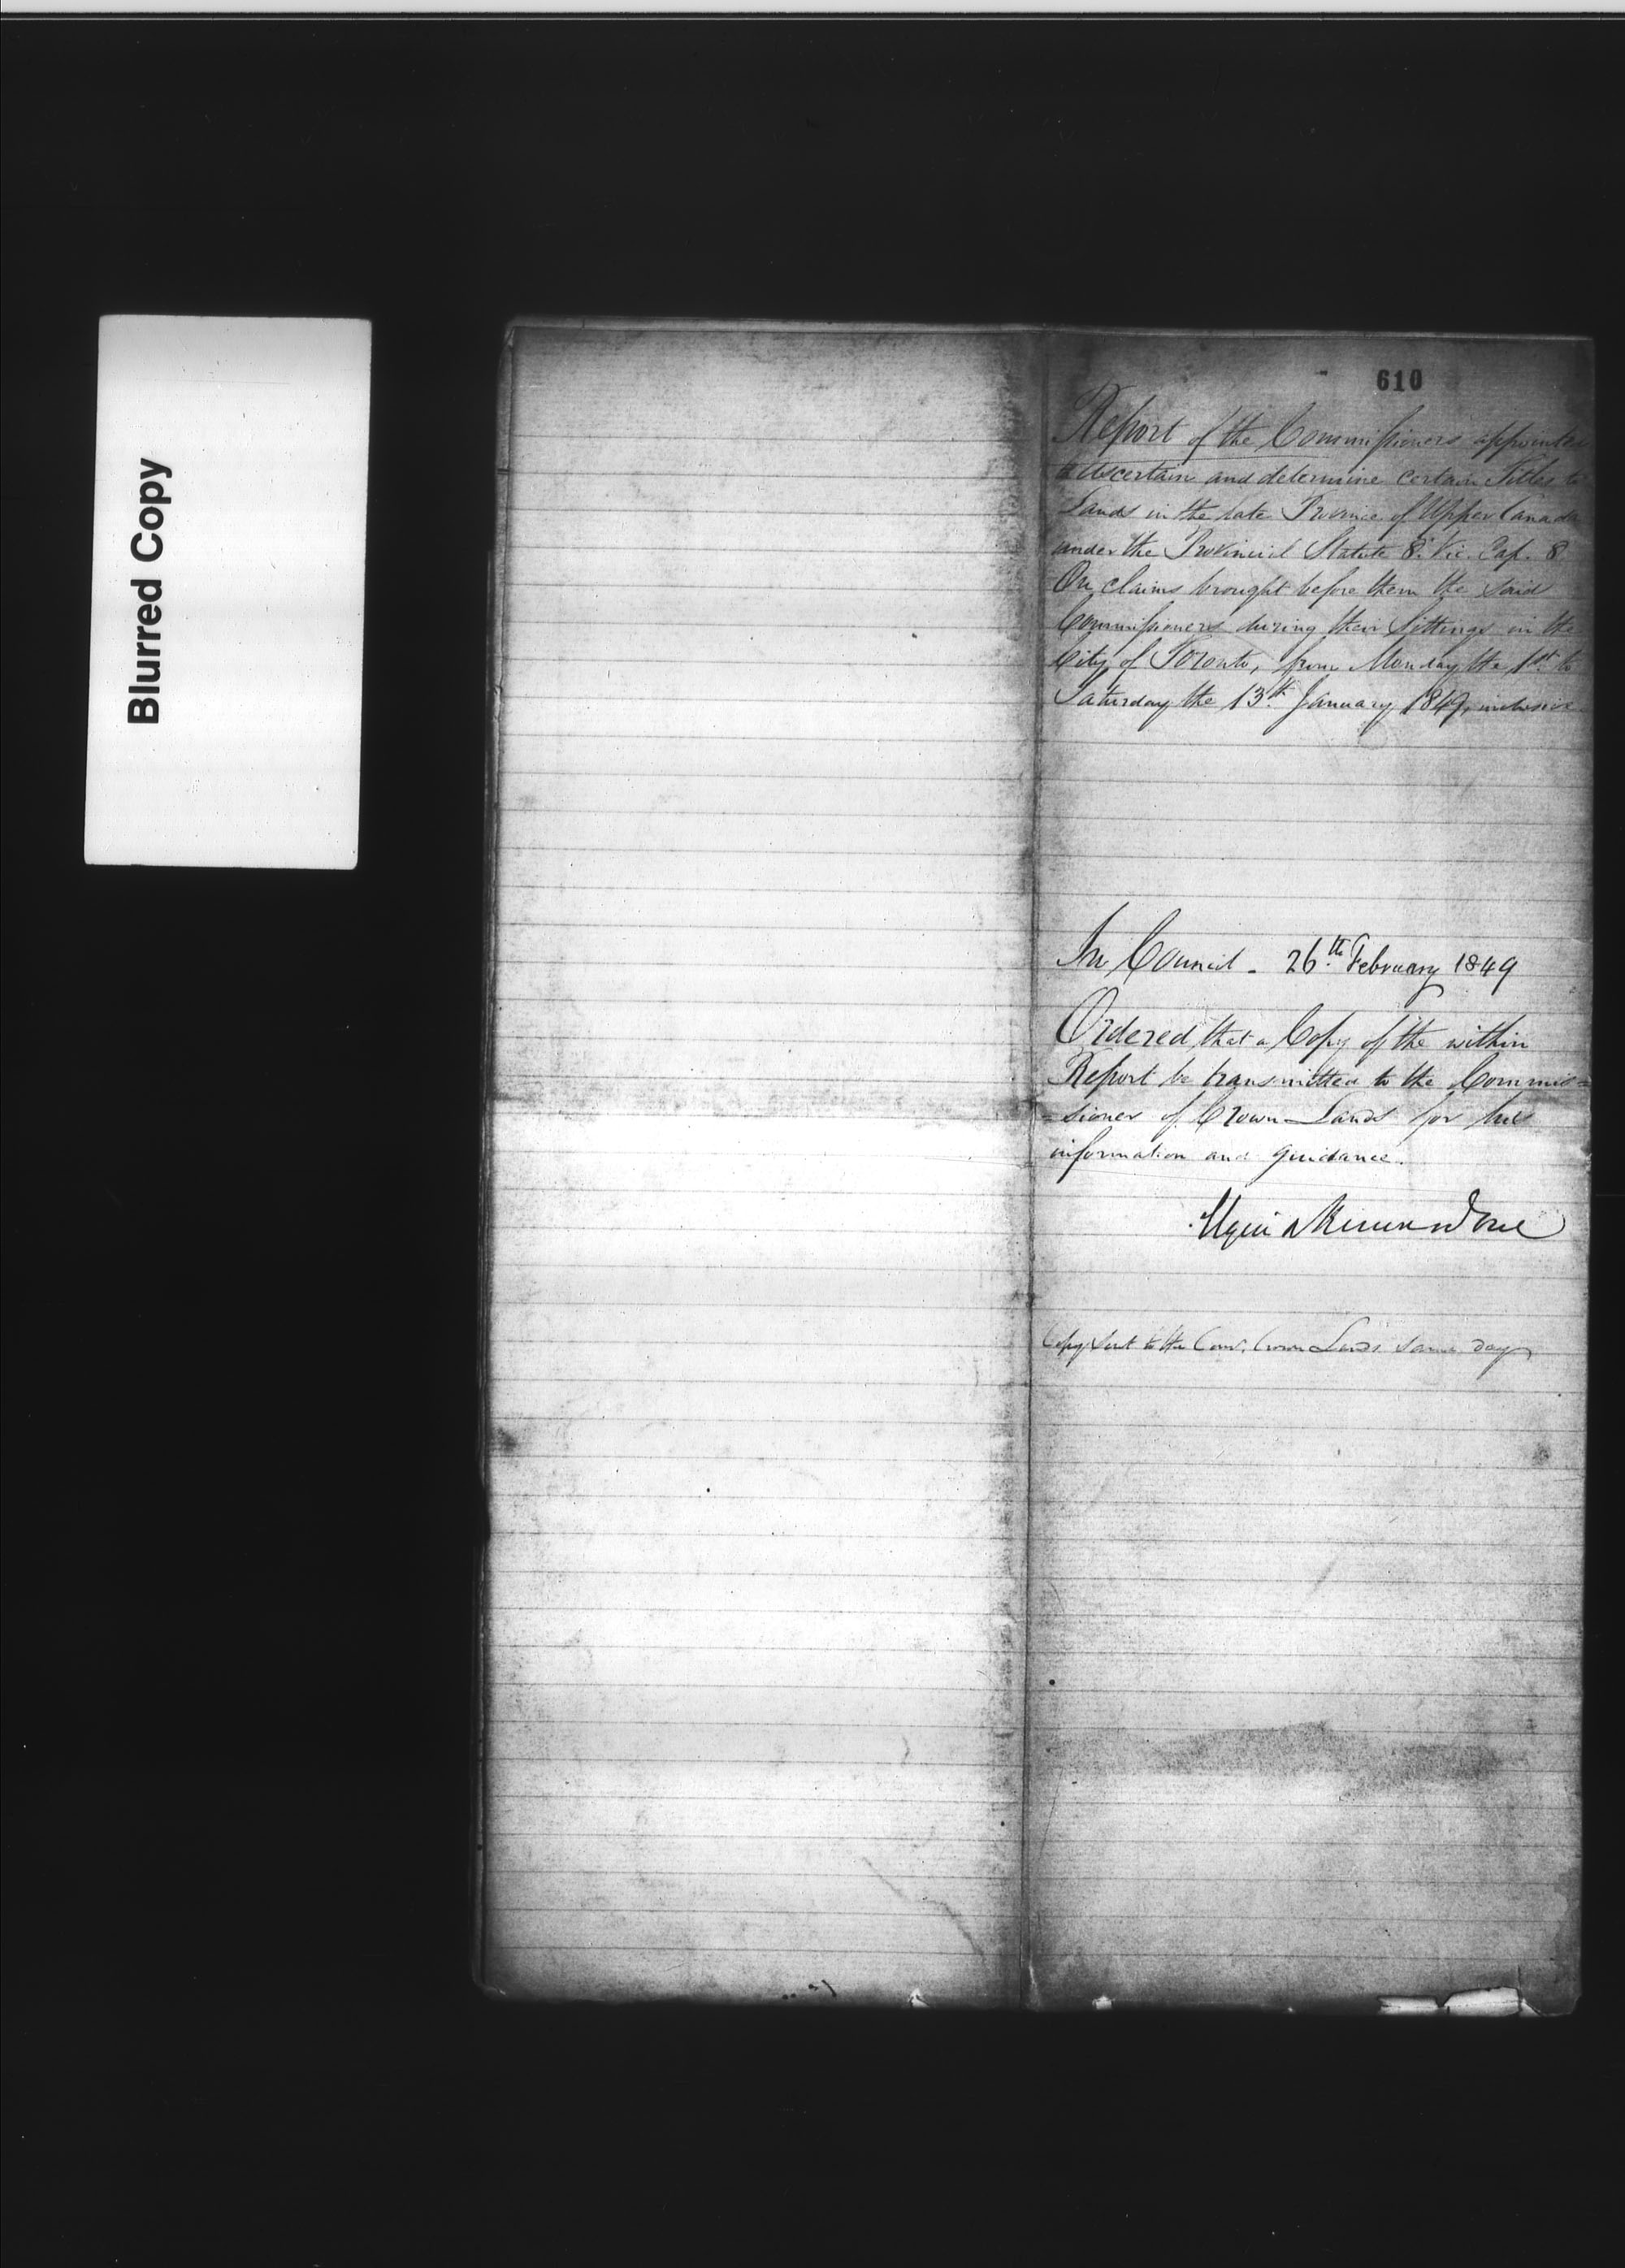 Blurred Copy
610
Report of the Commissioners appointed
to Ascertain and determine certain Titles to
Lands in the late Province of Upper Canada
under the Provincial Statute 8. Vic. Cap. 8
On claims brought before them the said
Commissioners during their Sittings in the
City of Toronto, from Monday the 1st to
Saturday the 13th January 1849, inclusive
In Council - 26th February 1849
Ordered that a Copy of the within
Report be transmitted to the Commis=
=sioner of Crown Lands for his
information and guidance.
Elgin & Kincardine
Copy sent to the Comr. Crown Lands same day